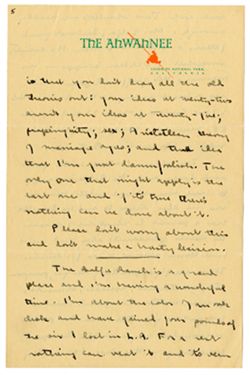 5
THE AHWAHNEE
YOSEMITE NATIONAL PARK
CALIFORNIA
is that you don't drag all the old
theories out: your ideas at twenty-two
and your ideas at twenty-five;
sex; Aristotelian theory
of marriage ages; and the idea
that I'm just The
only one that might apply is the
last one and if it's true there's
nothing can be done about it.
Please don't worry about this
and don't make a hasty decision.
The Ranch is a grand
place and I'm having a wonderful
time. I'm about the color of an oak
desk and have gained four pounds of
the six I lost in L.A. For a rest
nothing can beat it and to